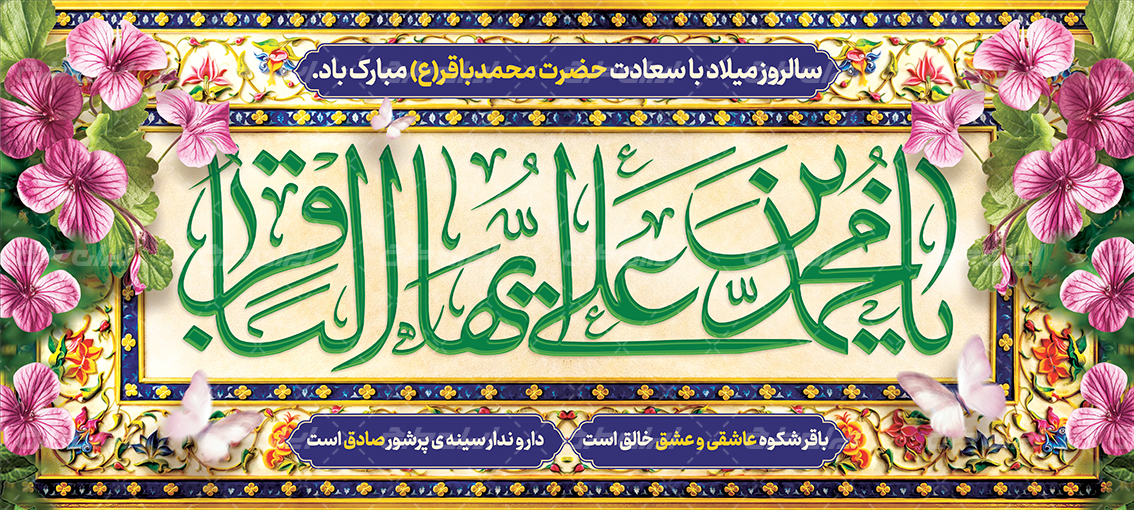 سالروز میلاد با سعادت حضرت محمد باقر(ع) مبارک باد.
یا محمد بن علی ایها الباقر
باقر شکوه عاشقی و عشق خالق است
دار و ندار سینه ی پرشور صادق است